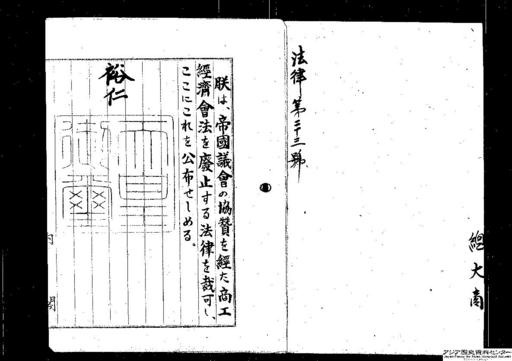 法律第二十三號
總大閣
朕は、帝國議會の協贊を經た商工
經濟會法を廢止する法律を裁可し、
ここにこれを公布せしめる。
裕仁
天皇御璽
内閣
アジア歴史資料センター